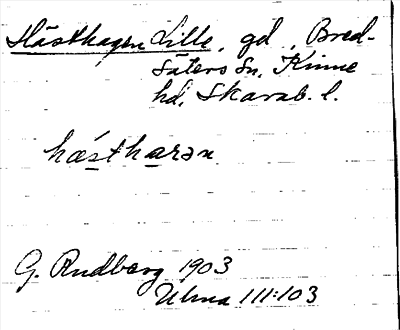 Hästhagen Lille, gd, Bred-
säters sn, Kinne
hd, Skarab. l.
hæstharən
G. Rudberg 1903
Ulma 111:103